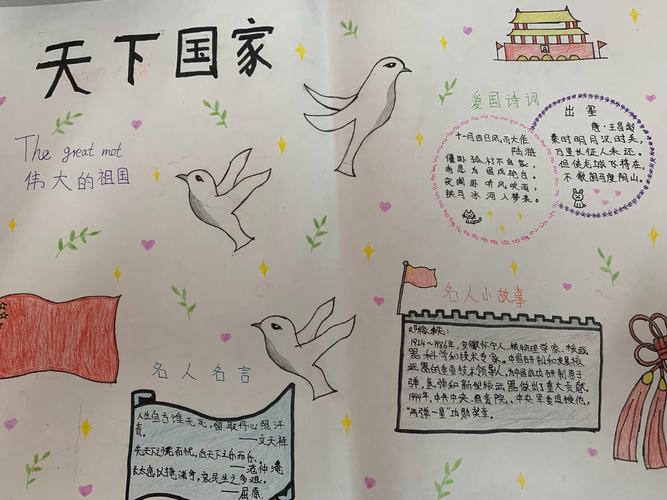 天下国家
The great mot
伟大的祖国
爱国诗词
十一月四日风雨大作
陆游
僵卧孤村不自哀，
尚思为国戍轮台。
夜阑卧听风吹雨，
铁马冰河入梦来。
出塞
唐·王昌龄
秦时明月汉时关，
万里长征人未还。
但使龙城飞将在，
不教胡马度阴山。
名人名言
人生自古谁无死，留取丹心照汗
青。
——文天祥
先天下之忧而忧，后天下之乐而乐。
——范仲淹
太息以掩涕兮，哀民生之多艰。
——屈原
名人小故事
邓稼先：
1924~1986年，安徽怀宁人，核物理学家、核武
器科学和技术专家。中国研制和发展核
武器的重要技术领导人，为中国成功研制原子
弹，氢弹和新型核武器做出了重大贡献。
1999年，中共中央、国务院、中央军委追授他，
“两弹一星”功勋奖章。